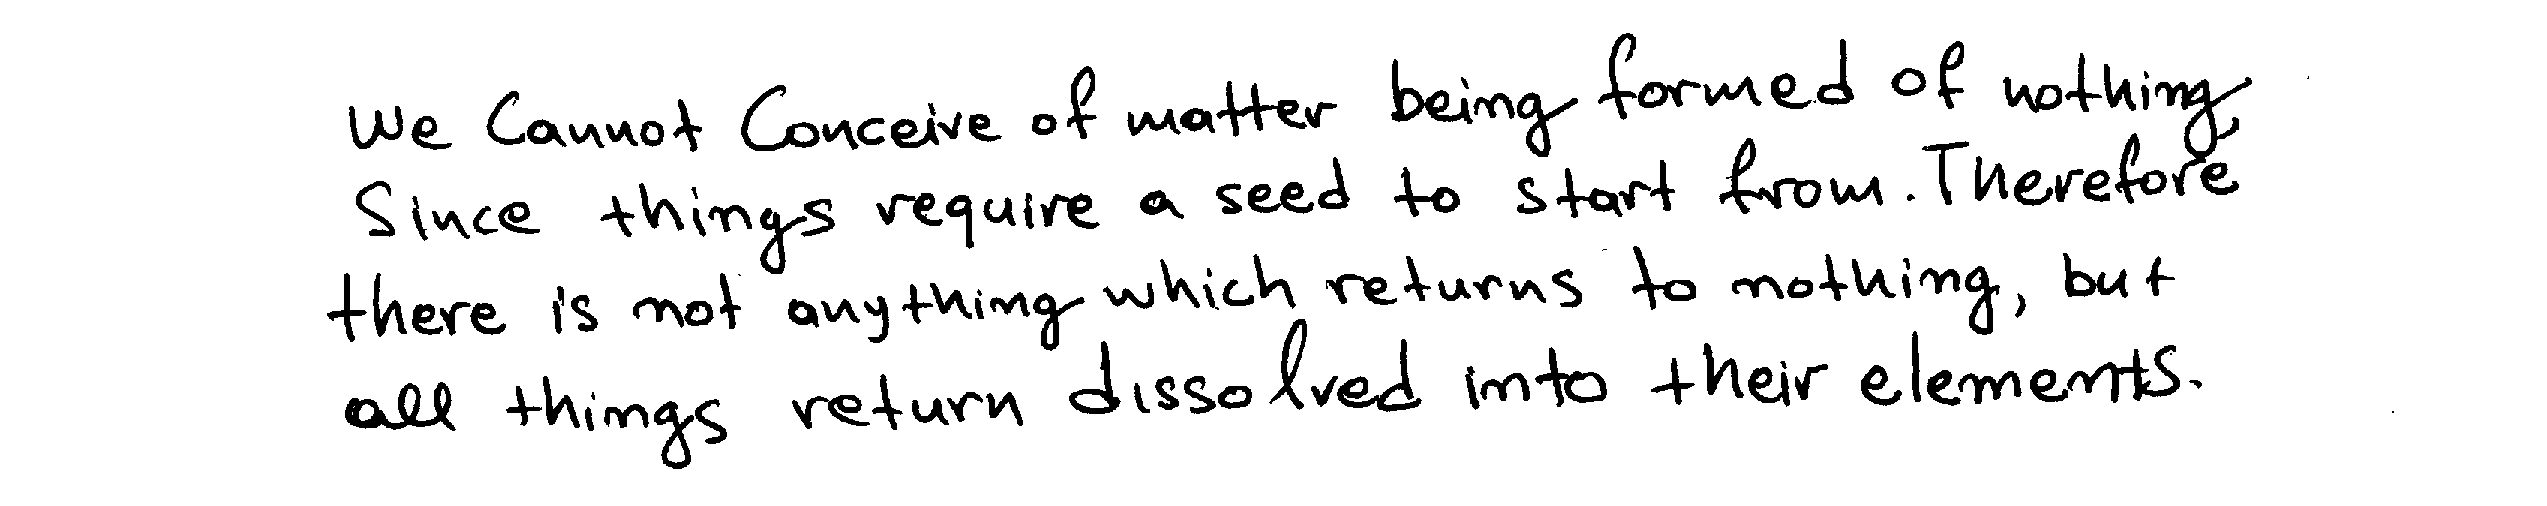 We Cannot Conceive of matter being formed of nothing,
Since things require a seed to start from. Therefore
there is not anything which returns to nothing, but
all things return dissolved into their elements.